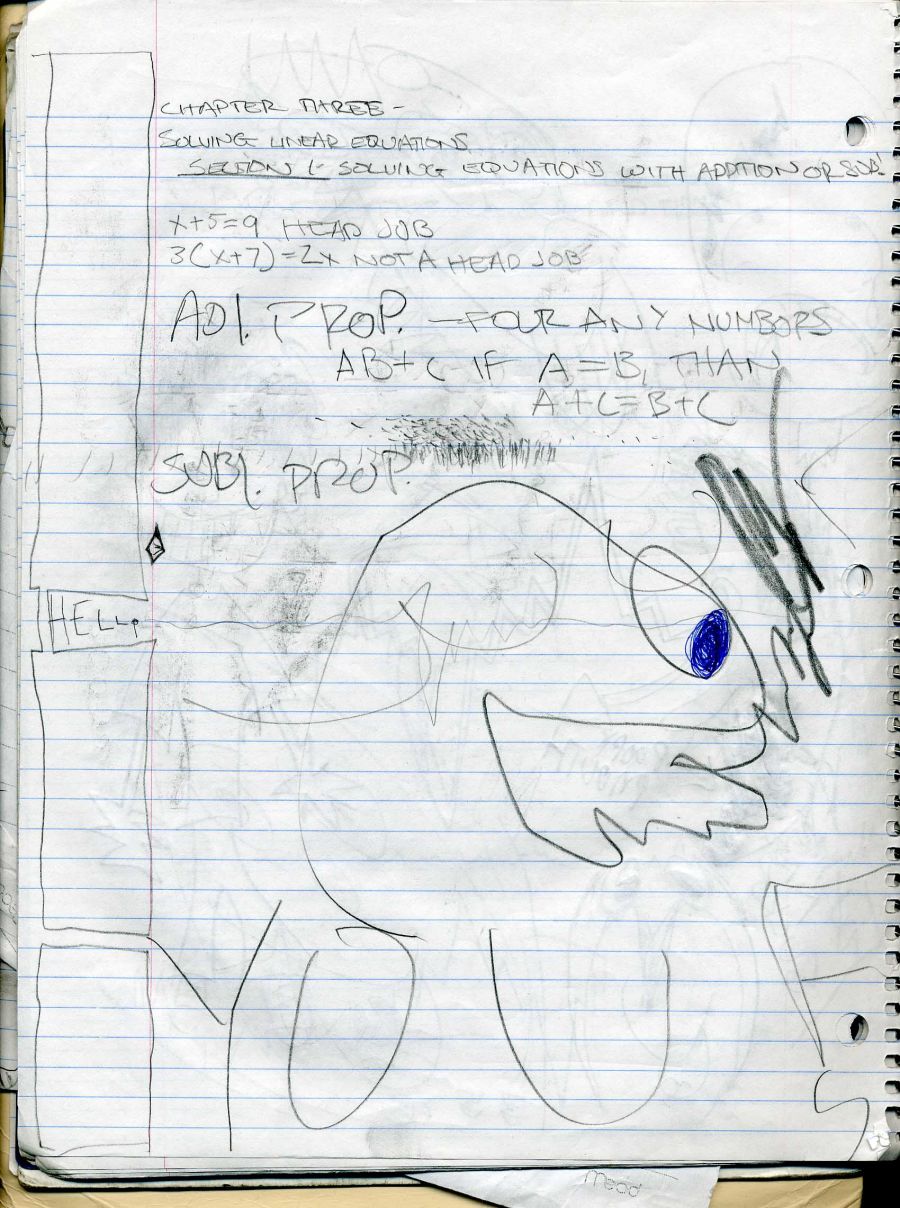 CHAPTER THREE -
SOLVING LINEAR EQUATIONS
SECTION 1- SOLVING EQUATIONS WITH ADDITION OR SUB.
x+5=9 HEAD JOB
3(x+7)=2x NOT A HEAD JOB
ADD. PROP. - FOUR ANY NUMBORS
AB+C IF A=B, THAN
A+C=B+C
SUB. PROP.
HELLP
YOU
Mead